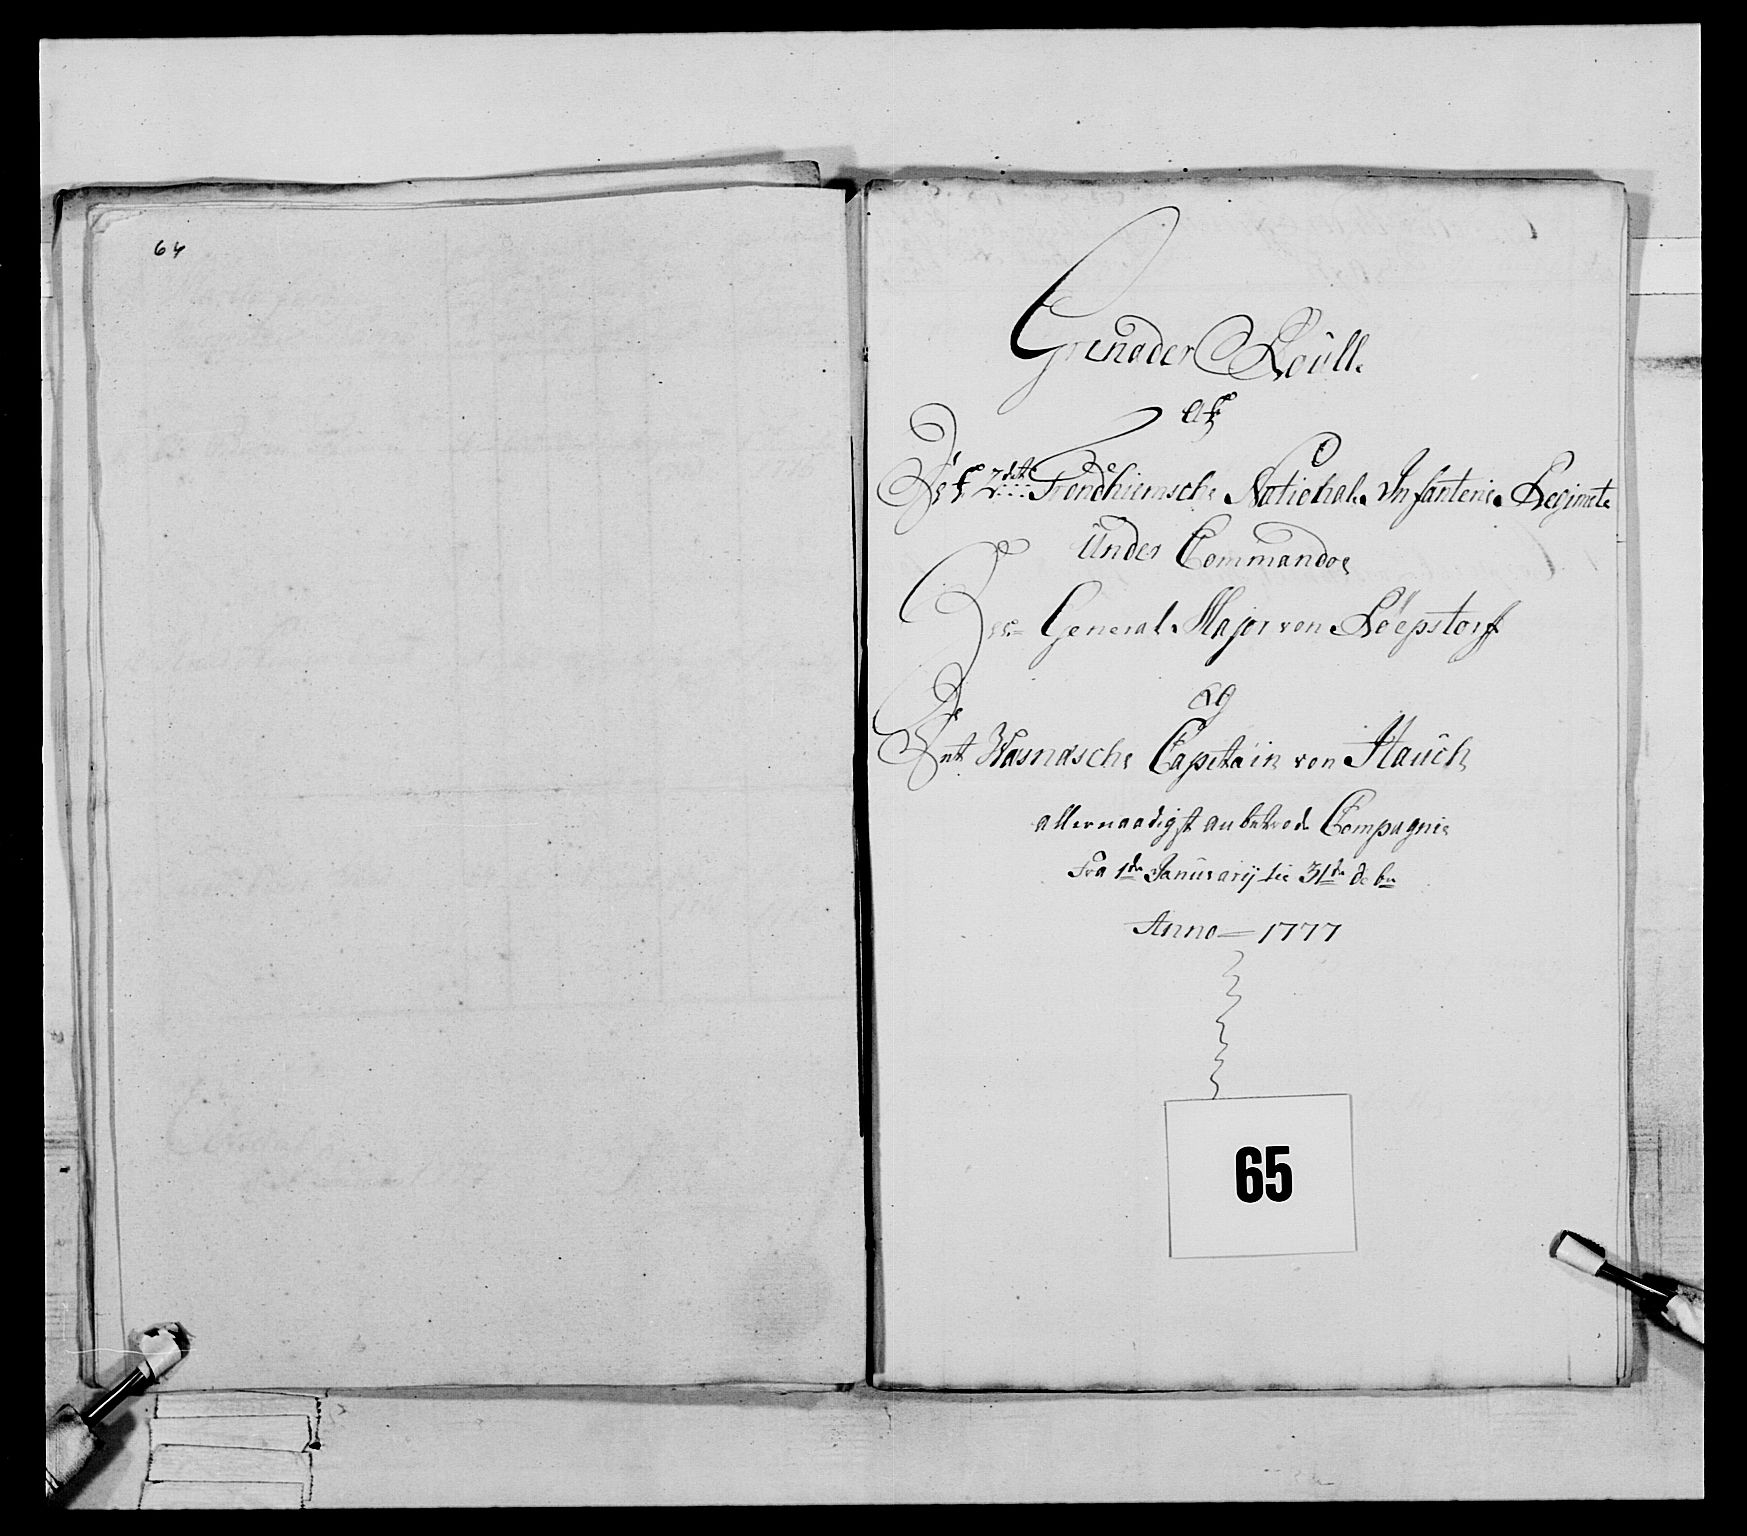 64
Grenader Roull
af
Det 2det Trondhiemsche National Infanterie Regimet
Under Commandoe
Her General Major von Röepstorff
og
De
Capitain von Hauch
allernaadigst anbetroede Compagnie
Fra 1de Januarij til 31de
Anno 1777
65